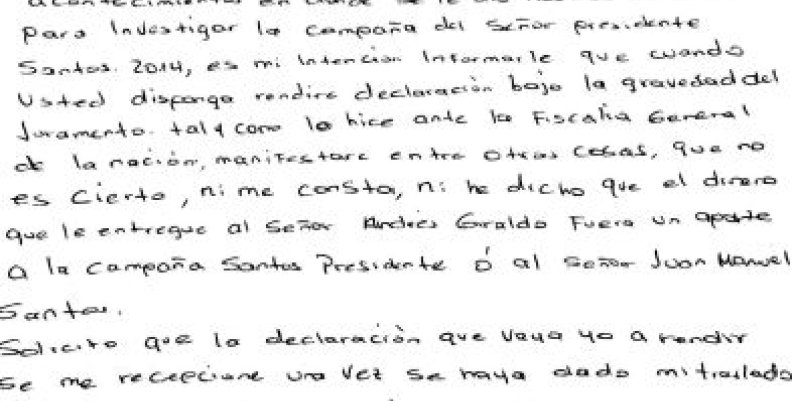 para Investigar la campaña del Señor presidente
Santos. 2014, es mi intención Informarle que cuando
Usted disponga rendire declaración bajo la gravedad del
Juramento. tal y como lo hice ante la Fiscalia General
de la nación, manifestare entre otras cosas, que no
es cierto, ni me consta, ni he dicho que el dinero
que le entregue al Señor Andrés Giraldo Fuera un aporte
a la campaña Santos Presidente ó al Señor Juan Manuel
Santos.
Solicito que la declaración que vaya yo a rendir
se me recepcione una vez se haya dado mi traslado